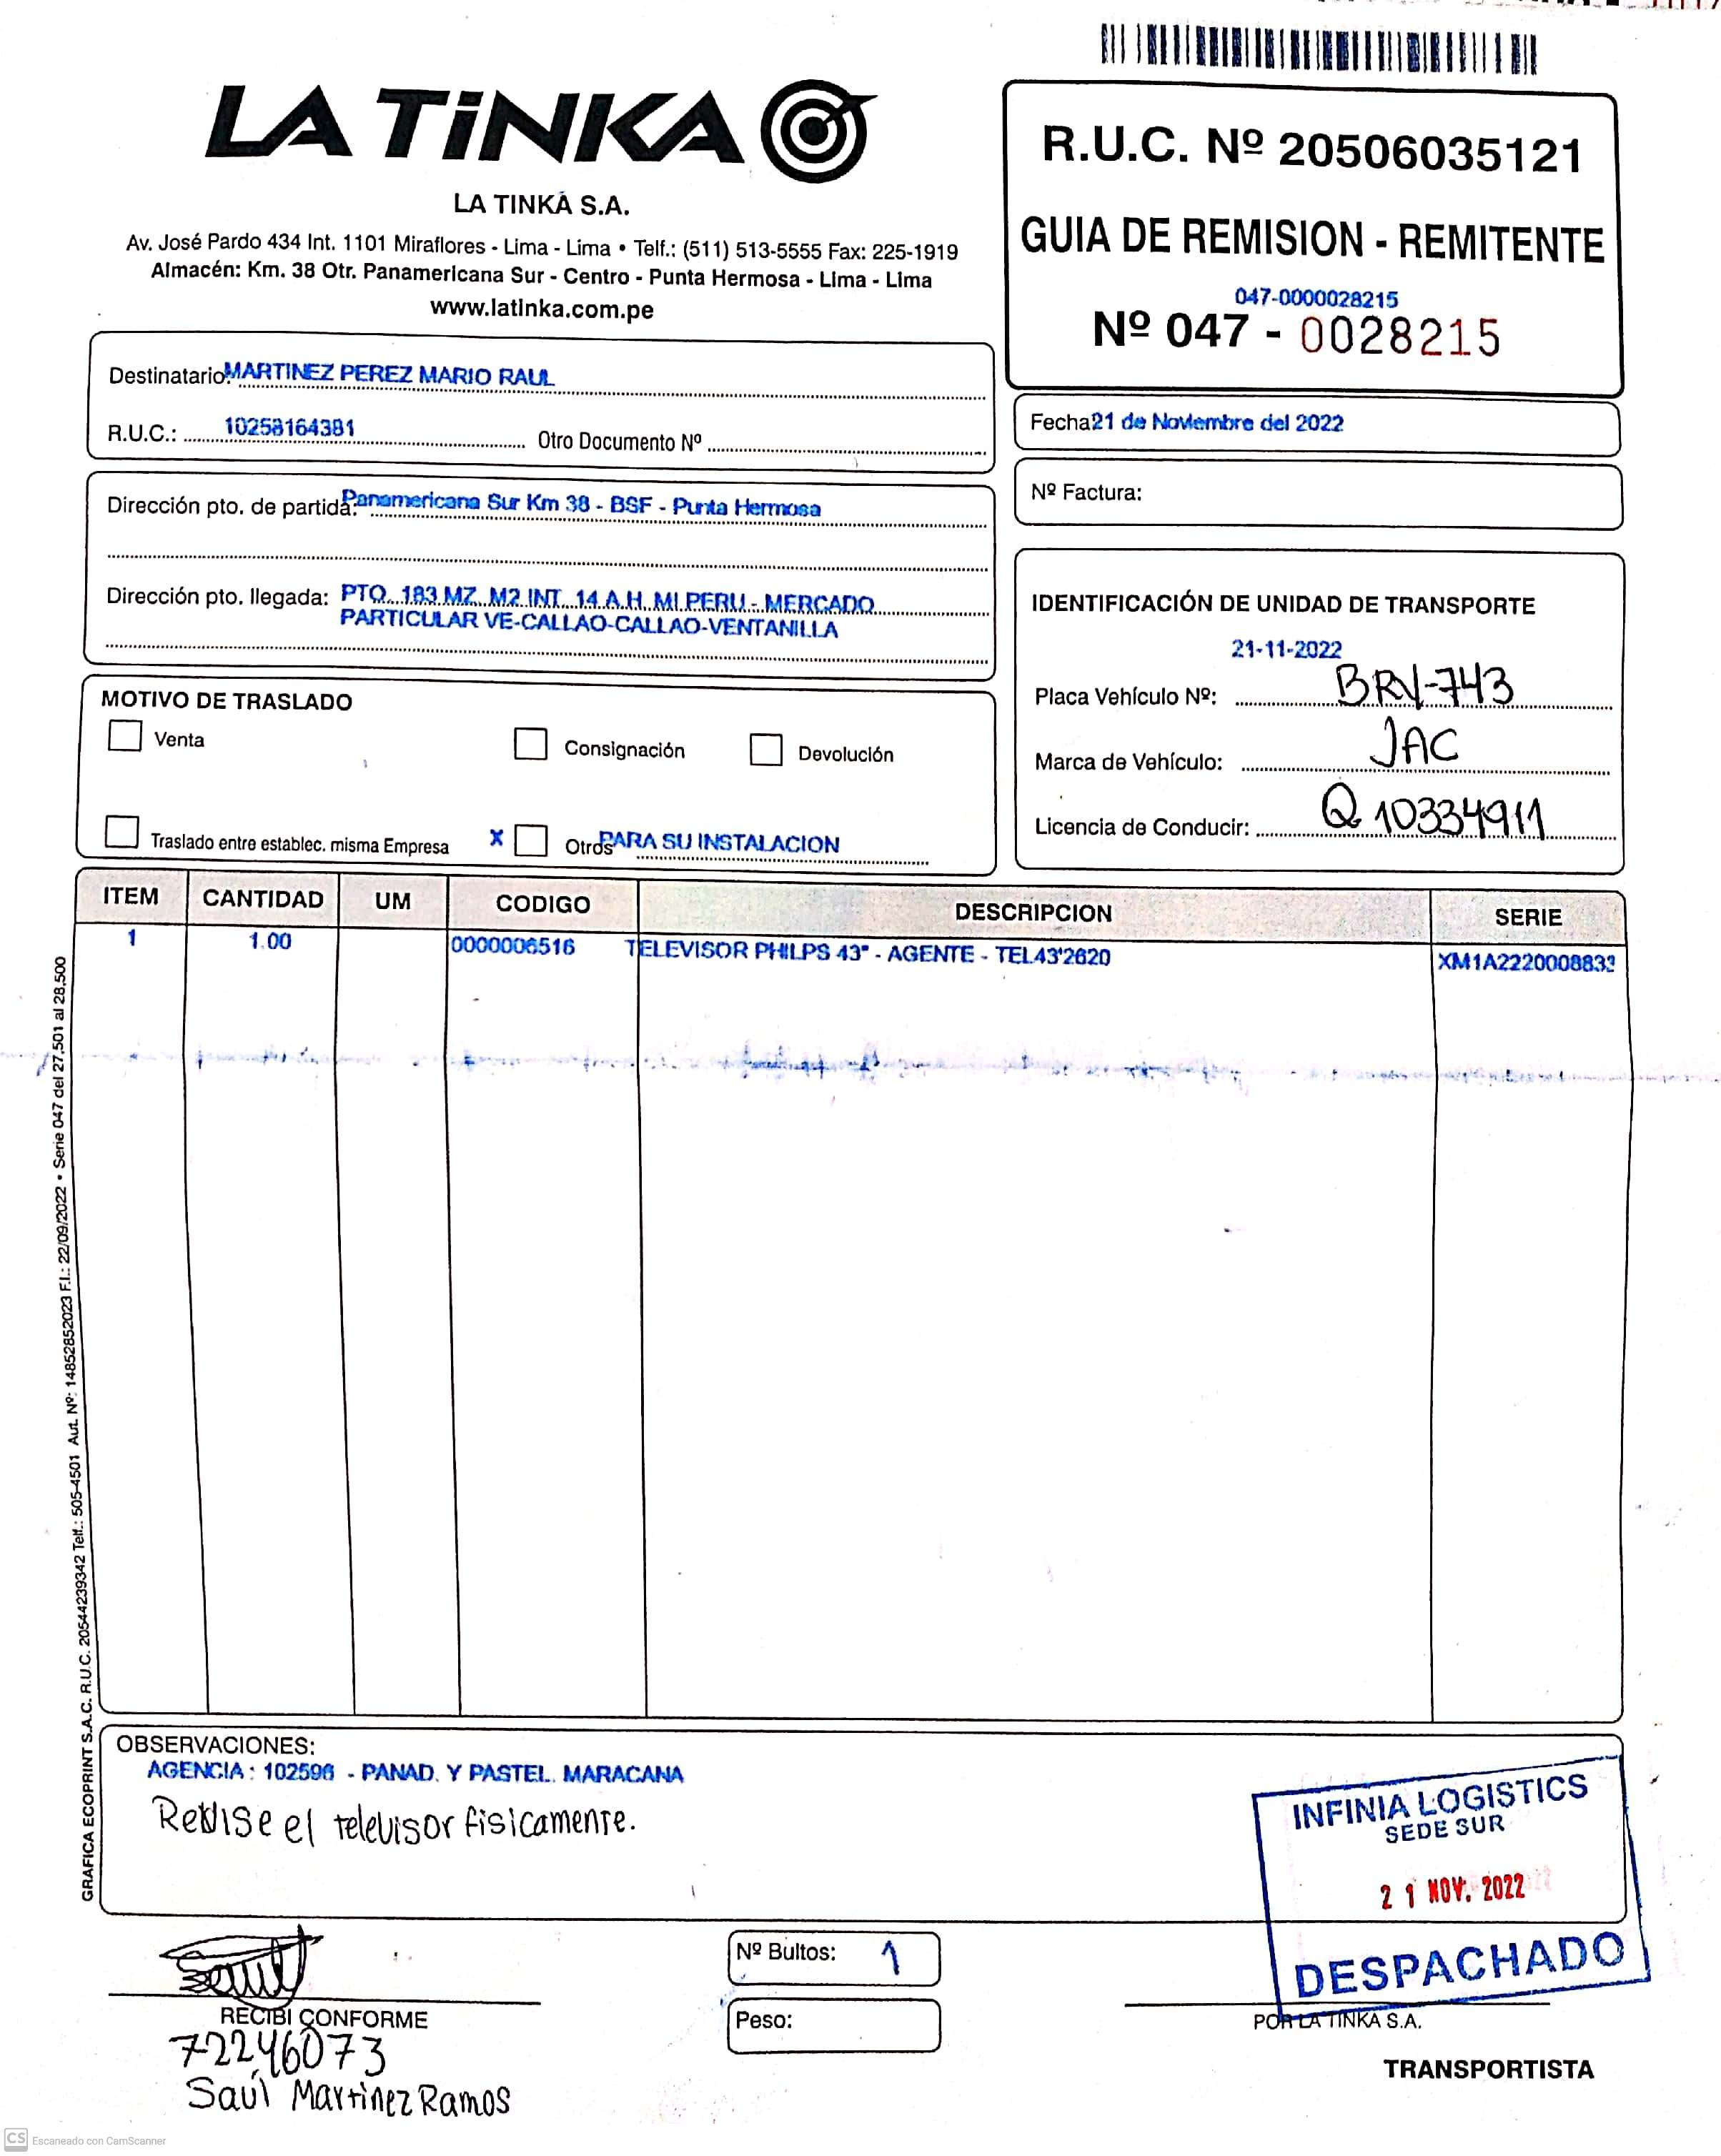 LA TiNKA
LA TINKA S.A.
Av. José Pardo 434 Int. 1101 Miraflores - Lima - Lima • Telf.: (511) 513-5555 Fax: 225-1919
Almacén: Km. 38 Otr. Panamericana Sur - Centro - Punta Hermosa - Lima - Lima
www.latinka.com.pe
R.U.C. Nº 20506035121
GUIA DE REMISION - REMITENTE
047-0000028215
Nº 047 - 0028215
Destinatario: MARTINEZ PEREZ MARIO RAUL
R.U.C.: 10258164381 Otro Documento Nº
Fecha 21 de Noviembre del 2022
Nº Factura:
Dirección pto. de partida: Panamericana Sur Km 38 - BSF - Punta Hermosa
Dirección pto. llegada: PTO. 183 MZ. M2 INT. 14 A.H. MI PERU - MERCADO
PARTICULAR VE-CALLAO-CALLAO-VENTANILLA
IDENTIFICACIÓN DE UNIDAD DE TRANSPORTE
21-11-2022
Placa Vehículo Nº: BRV-743
Marca de Vehículo: JAC
Licencia de Conducir: Q 10334911
MOTIVO DE TRASLADO
Venta
Consignación
Devolución
Traslado entre establec. misma Empresa
X Otros PARA SU INSTALACION
ITEM CANTIDAD UM CODIGO DESCRIPCION SERIE
1 1.00 0000006516 TELEVISOR PHILPS 43" - AGENTE - TEL43'2620 XM1A2220008833
GRAFICA ECOPRINT S.A.C. R.U.C. 20544239342 Telf.: 505-4501 Aut. Nº: 14852852023 F.I.: 22/09/2022 • Serie 047 del 27,501 al 28,500
OBSERVACIONES:
AGENCIA : 102596 - PANAD. Y PASTEL. MARACANA
Revise el televisor fisicamente.
INFINIA LOGISTICS
SEDE SUR
21 NOV. 2022
DESPACHADO
Saul
RECIBI CONFORME
72246073
Saúl Martinez Ramos
Nº Bultos: 1
Peso:
POR LA TINKA S.A.
TRANSPORTISTA
CS Escaneado con CamScanner